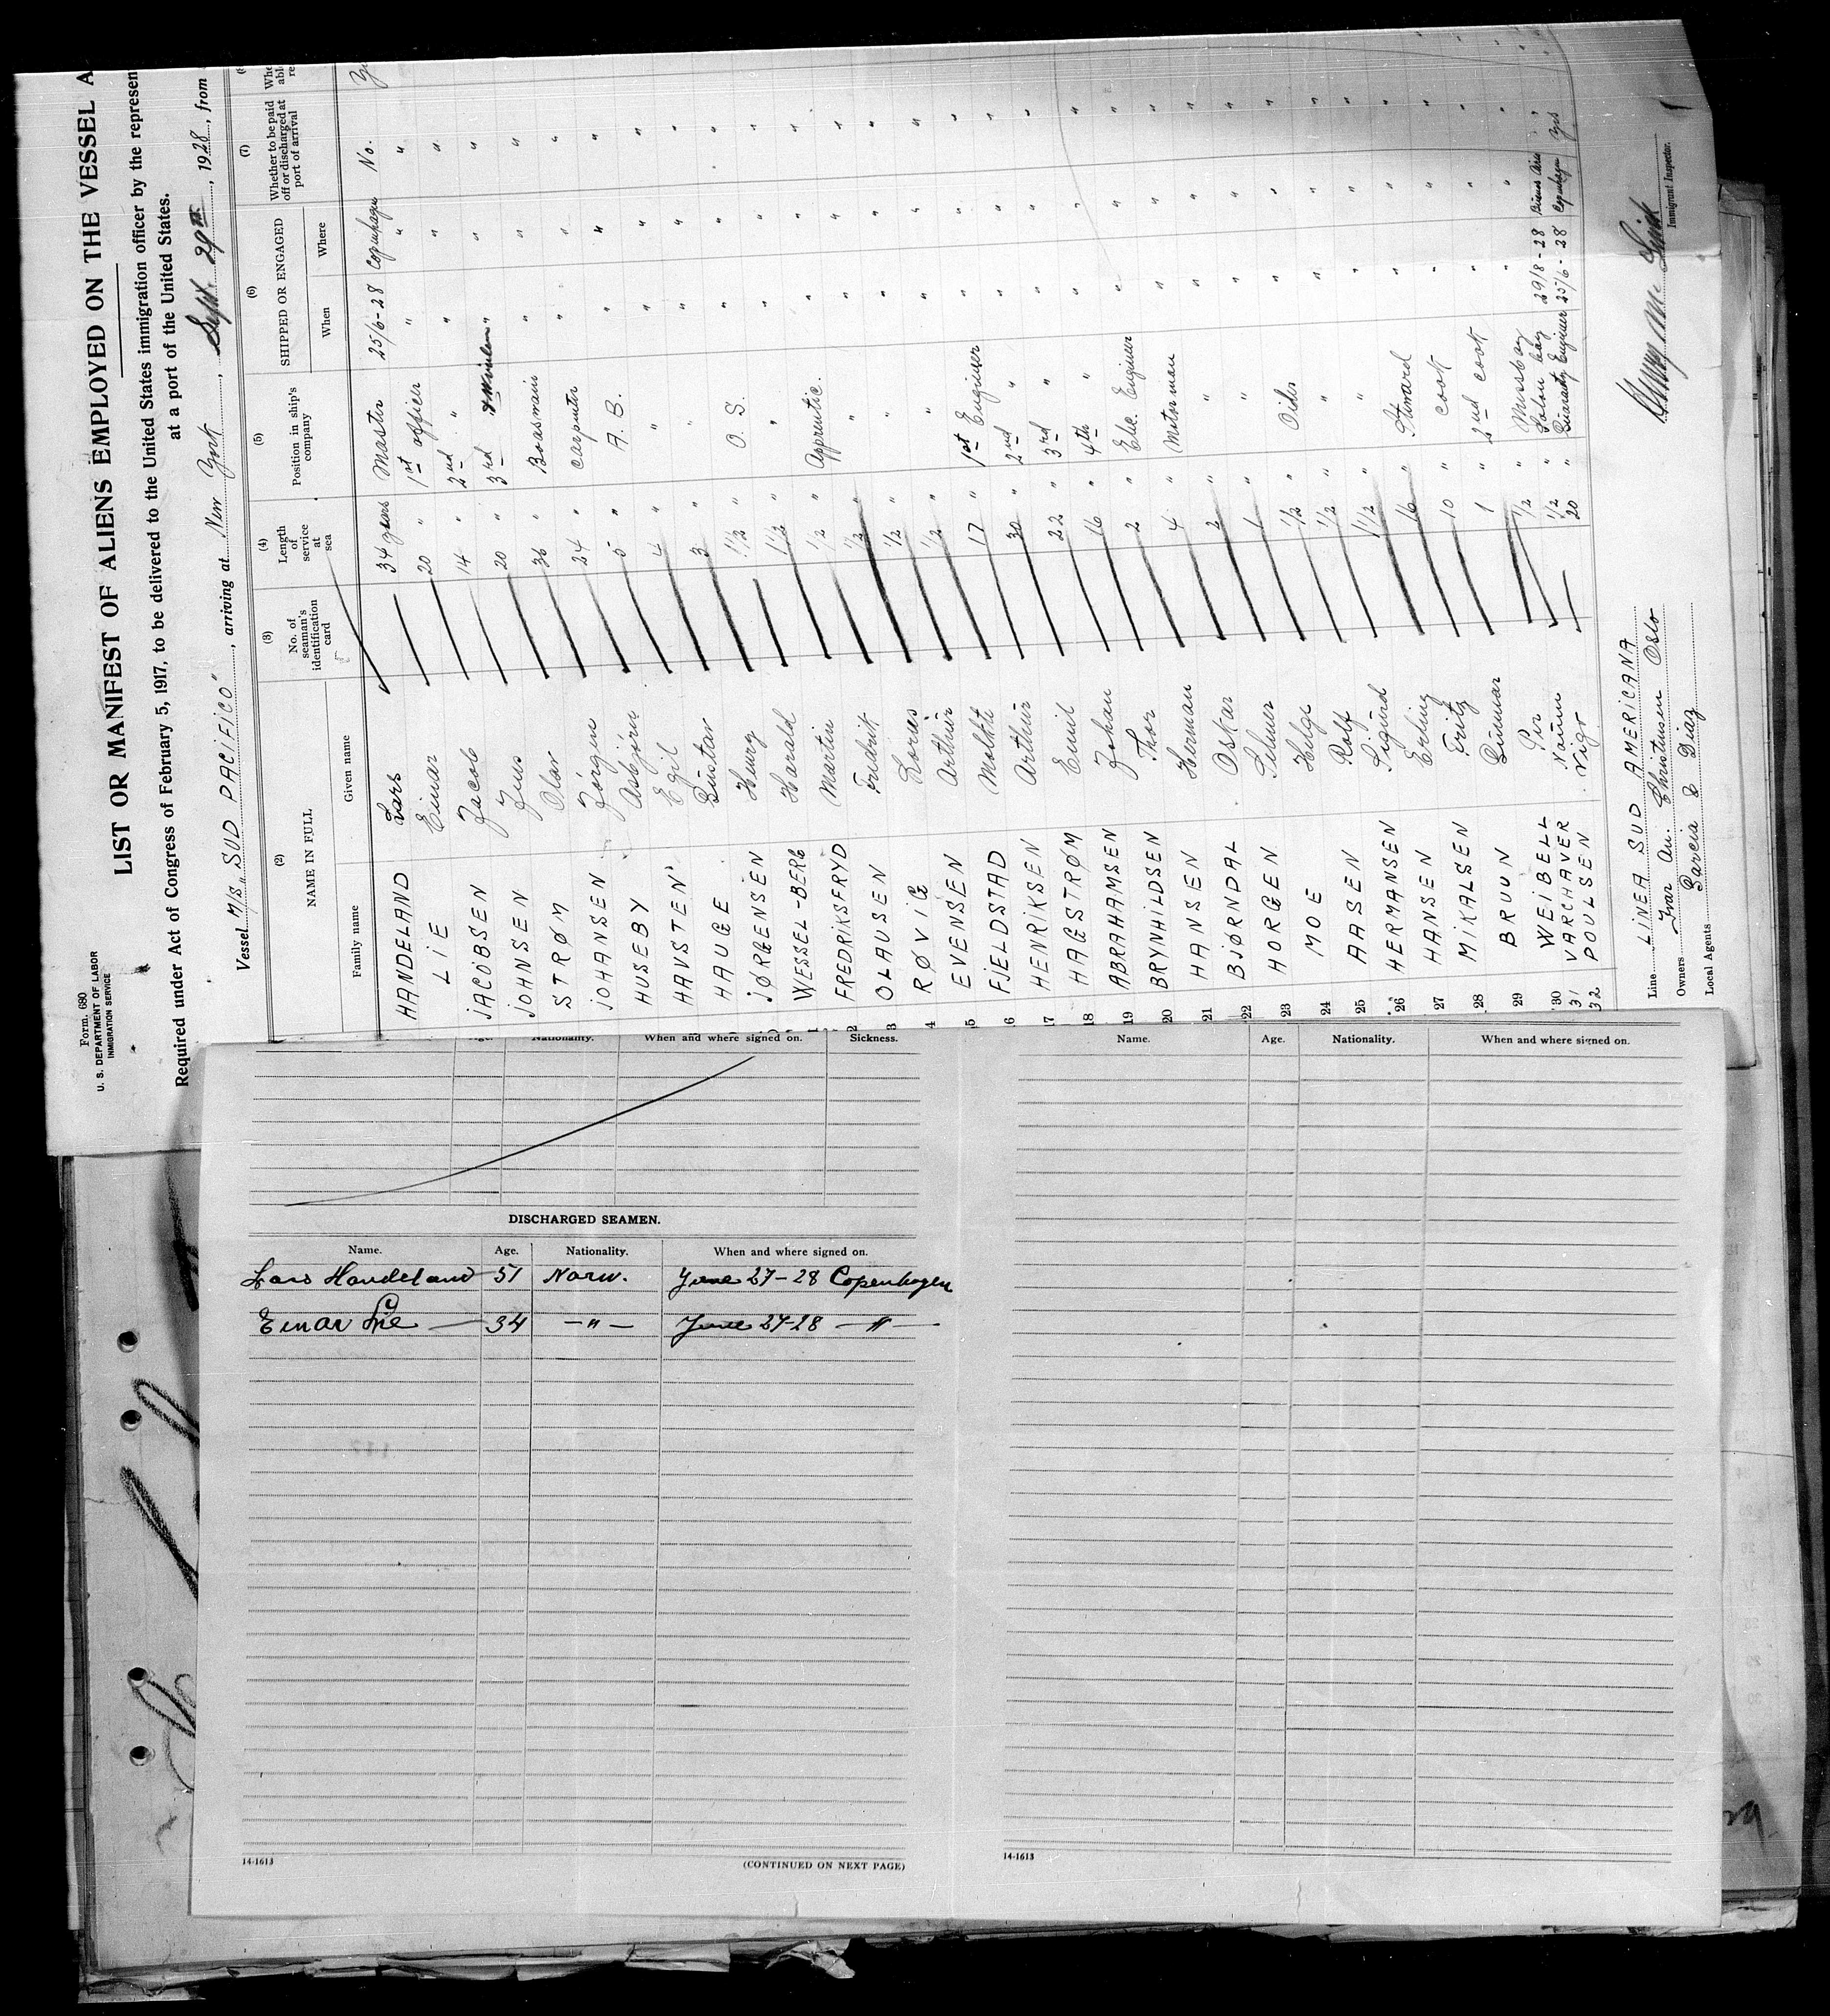 Form. 680
U. S. DEPARTMENT OF LABOR
IMMIGRATION SERVICE
LIST OR MANIFEST OF ALIENS EMPLOYED ON THE VESSEL A
Required under Act of Congress of February 5, 1917, to be delivered to the United States immigration officer by the represen
at a port of the United States.
Vessel M/S „SUD PACIFICO", arriving at New York, Sept. 29th, 1928, from
(2) (3) (4) (5) (6) (7)
NAME IN FULL No. of seaman's identification card Length of service at sea Position in ship's company SHIPPED OR ENGAGED Whether to be paid off or discharged at port of arrival
Family name Given name When Where
HANDELAND Lars 34 years Master 25/6-28 Copenhagen No.
LIE Einar 20 " 1st officer " " "
JACOBSEN Jacob 14 " 2nd " " " "
JOHNSEN Jens 20 " 3rd " " "
STRØM Olav 36 " Boatsmain " " "
JOHANSEN Jørgen 24 " Carpenter " " "
HUSEBY Asbjørn 5 " A. B. " " "
HAVSTEN Egil 4 " " " " "
HAUGE Gustav 3 " " " " "
JØRGENSEN Henry 1 1/2 " O. S. " " "
WESSEL-BERG Harald 1 1/2 " " " " "
1 FREDRIKSFRYD Martin 1/2 " Apprentic. " " "
2 OLAUSEN Fredrik 1/2 " " " " "
3 RØVIG 1/2 " " " " "
4 EVENSEN Arthur 1/2 " " " " "
5 FJELDSTAD Moltke 17 " 1st Engineer " " "
6 HENRIKSEN Arthur 30 " 2nd " " " "
17 HAGSTRØM Emil 22 " 3rd " " " "
18 ABRAHAMSEN Johan 16 " 4th " " " "
19 BRYNHILDSEN Thor 2 " Elec. Engineer " " "
20 HANSEN Herman 4 " Motorman " " "
21 BJØRNDAL Oskar 2 " " " " "
22 HORGEN Selmer 1 " " " " "
23 MOE Helge 1/2 " Oiler " " "
24 AASEN Rolf 1/2 " " " " "
25 HERMANSEN Sigurd 1 1/2 " " " " "
26 HANSEN Erling 16 " Steward " " "
27 MIKALSEN Fritz 10 " Cook " " "
28 BRUUN Gunnar 1 " 2nd cook " " "
29 WEIBELL Per 1/2 " Messboy " " "
30 31 VARCHAVER Naum 1/2 " Salon boy 29/8-28 Buenos Aires "
32 POULSEN Vigo 20 " Guaranty Engineer 25/6-28 Copenhagen Yes
Line LINEA SUD AMERICANA
Owners Ivar An. Christensen Oslo
Local Agents Garcia & Diaz
Immigrant Inspector.
Age. Nationality. When and where signed on. Sickness.
DISCHARGED SEAMEN.
Name. Age. Nationality. When and where signed on.
Lars Handeland 51 Norw. June 27-28 Copenhagen
Einar Lie 34 -"- June 27-28 -"-
14-1613
(CONTINUED ON NEXT PAGE)
Name. Age. Nationality. When and where signed on.
14-1613